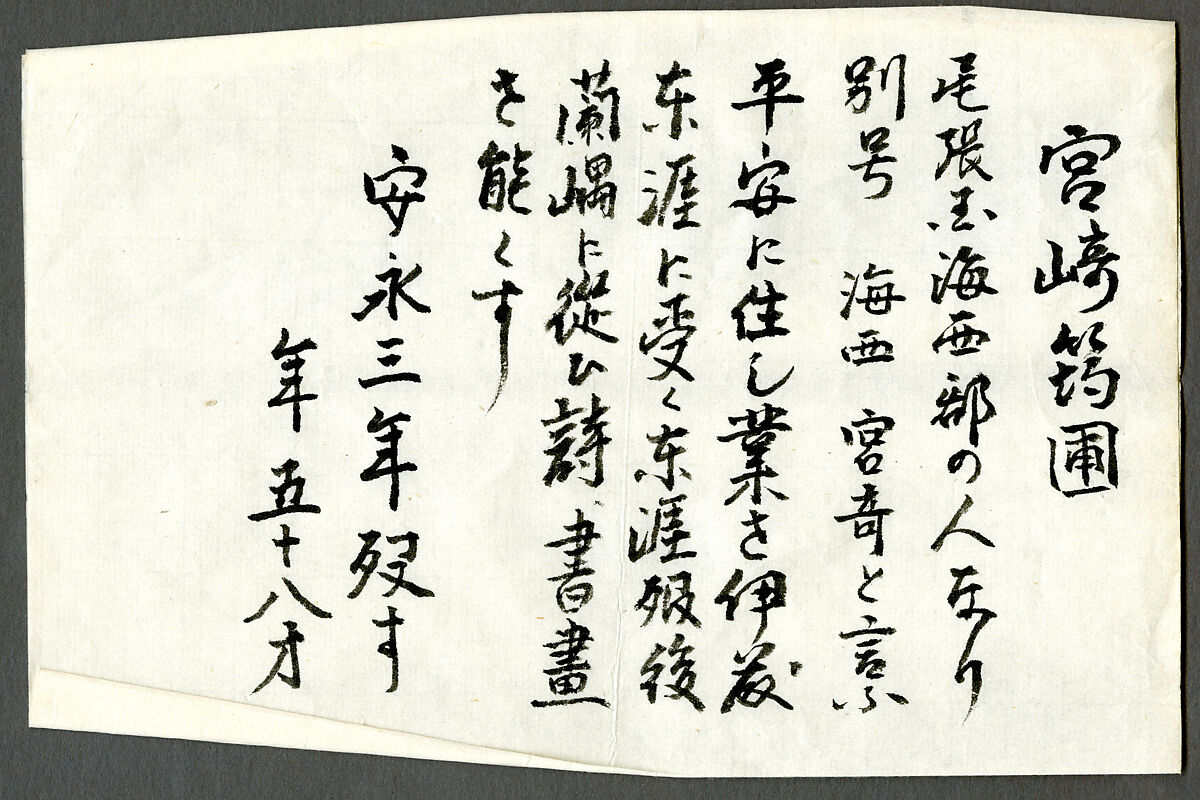 宮﨑筠圃
尾張国海西郡の人なり
別号　海西　宮奇と言ふ
平安に住し業を伊藤
東涯に受く東涯歿後
蘭嵎に従ひ詩、書畫
を能くす
安永三年歿す
年五十八才